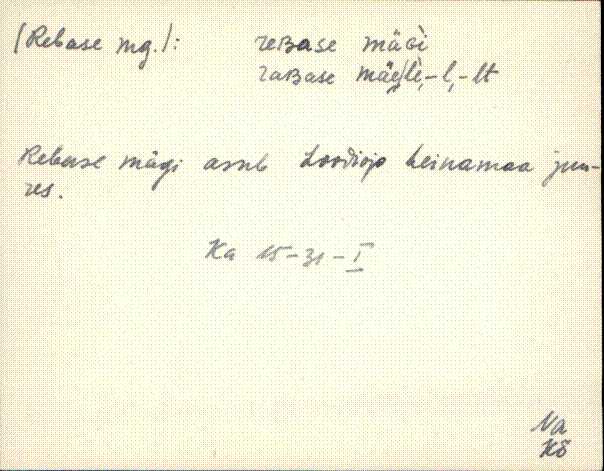 (Rebase mg.): reBase mäGi
raBase mäe̬/lè, -l, -lt
Rebase mägi asub Loodioja heinamaa juu-
res.
Ka 15-31-I
Va
Kõ